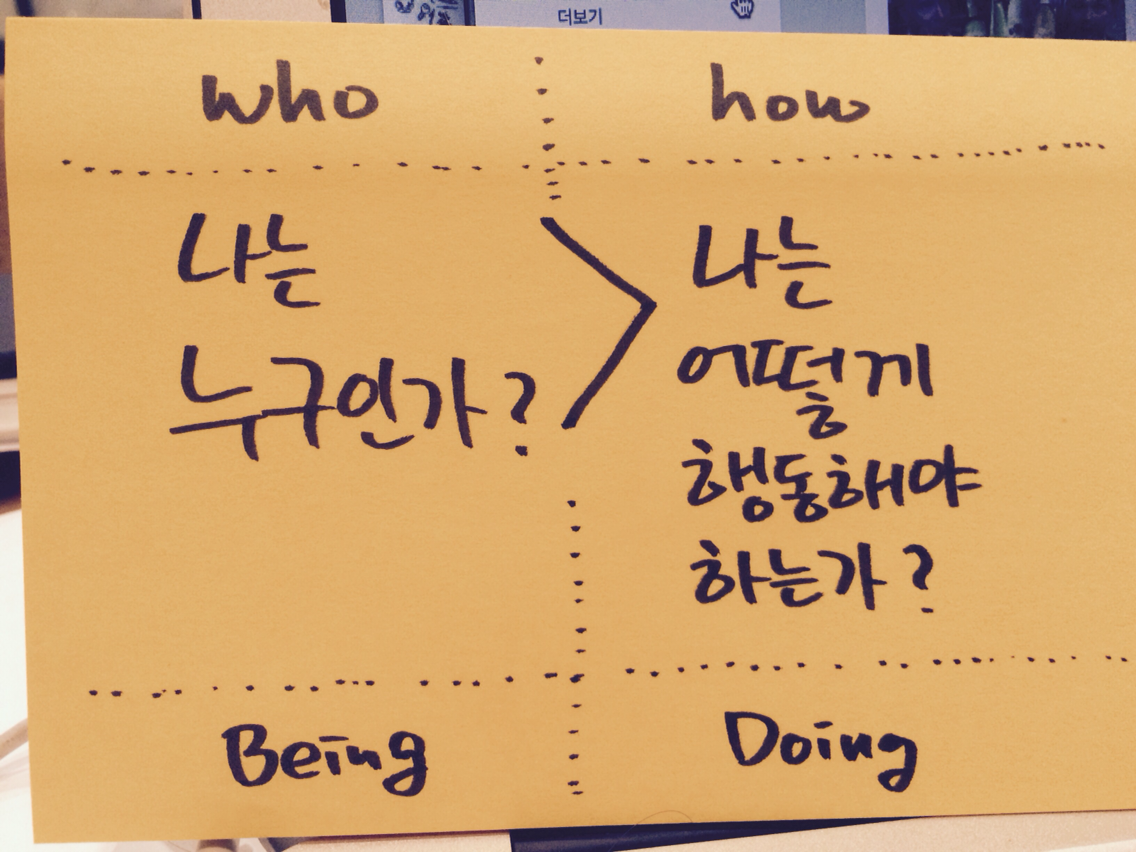 더보기
who
how
나는
누구인가?
>
나는
어떻게
행동해야
하는가?
Being
Doing